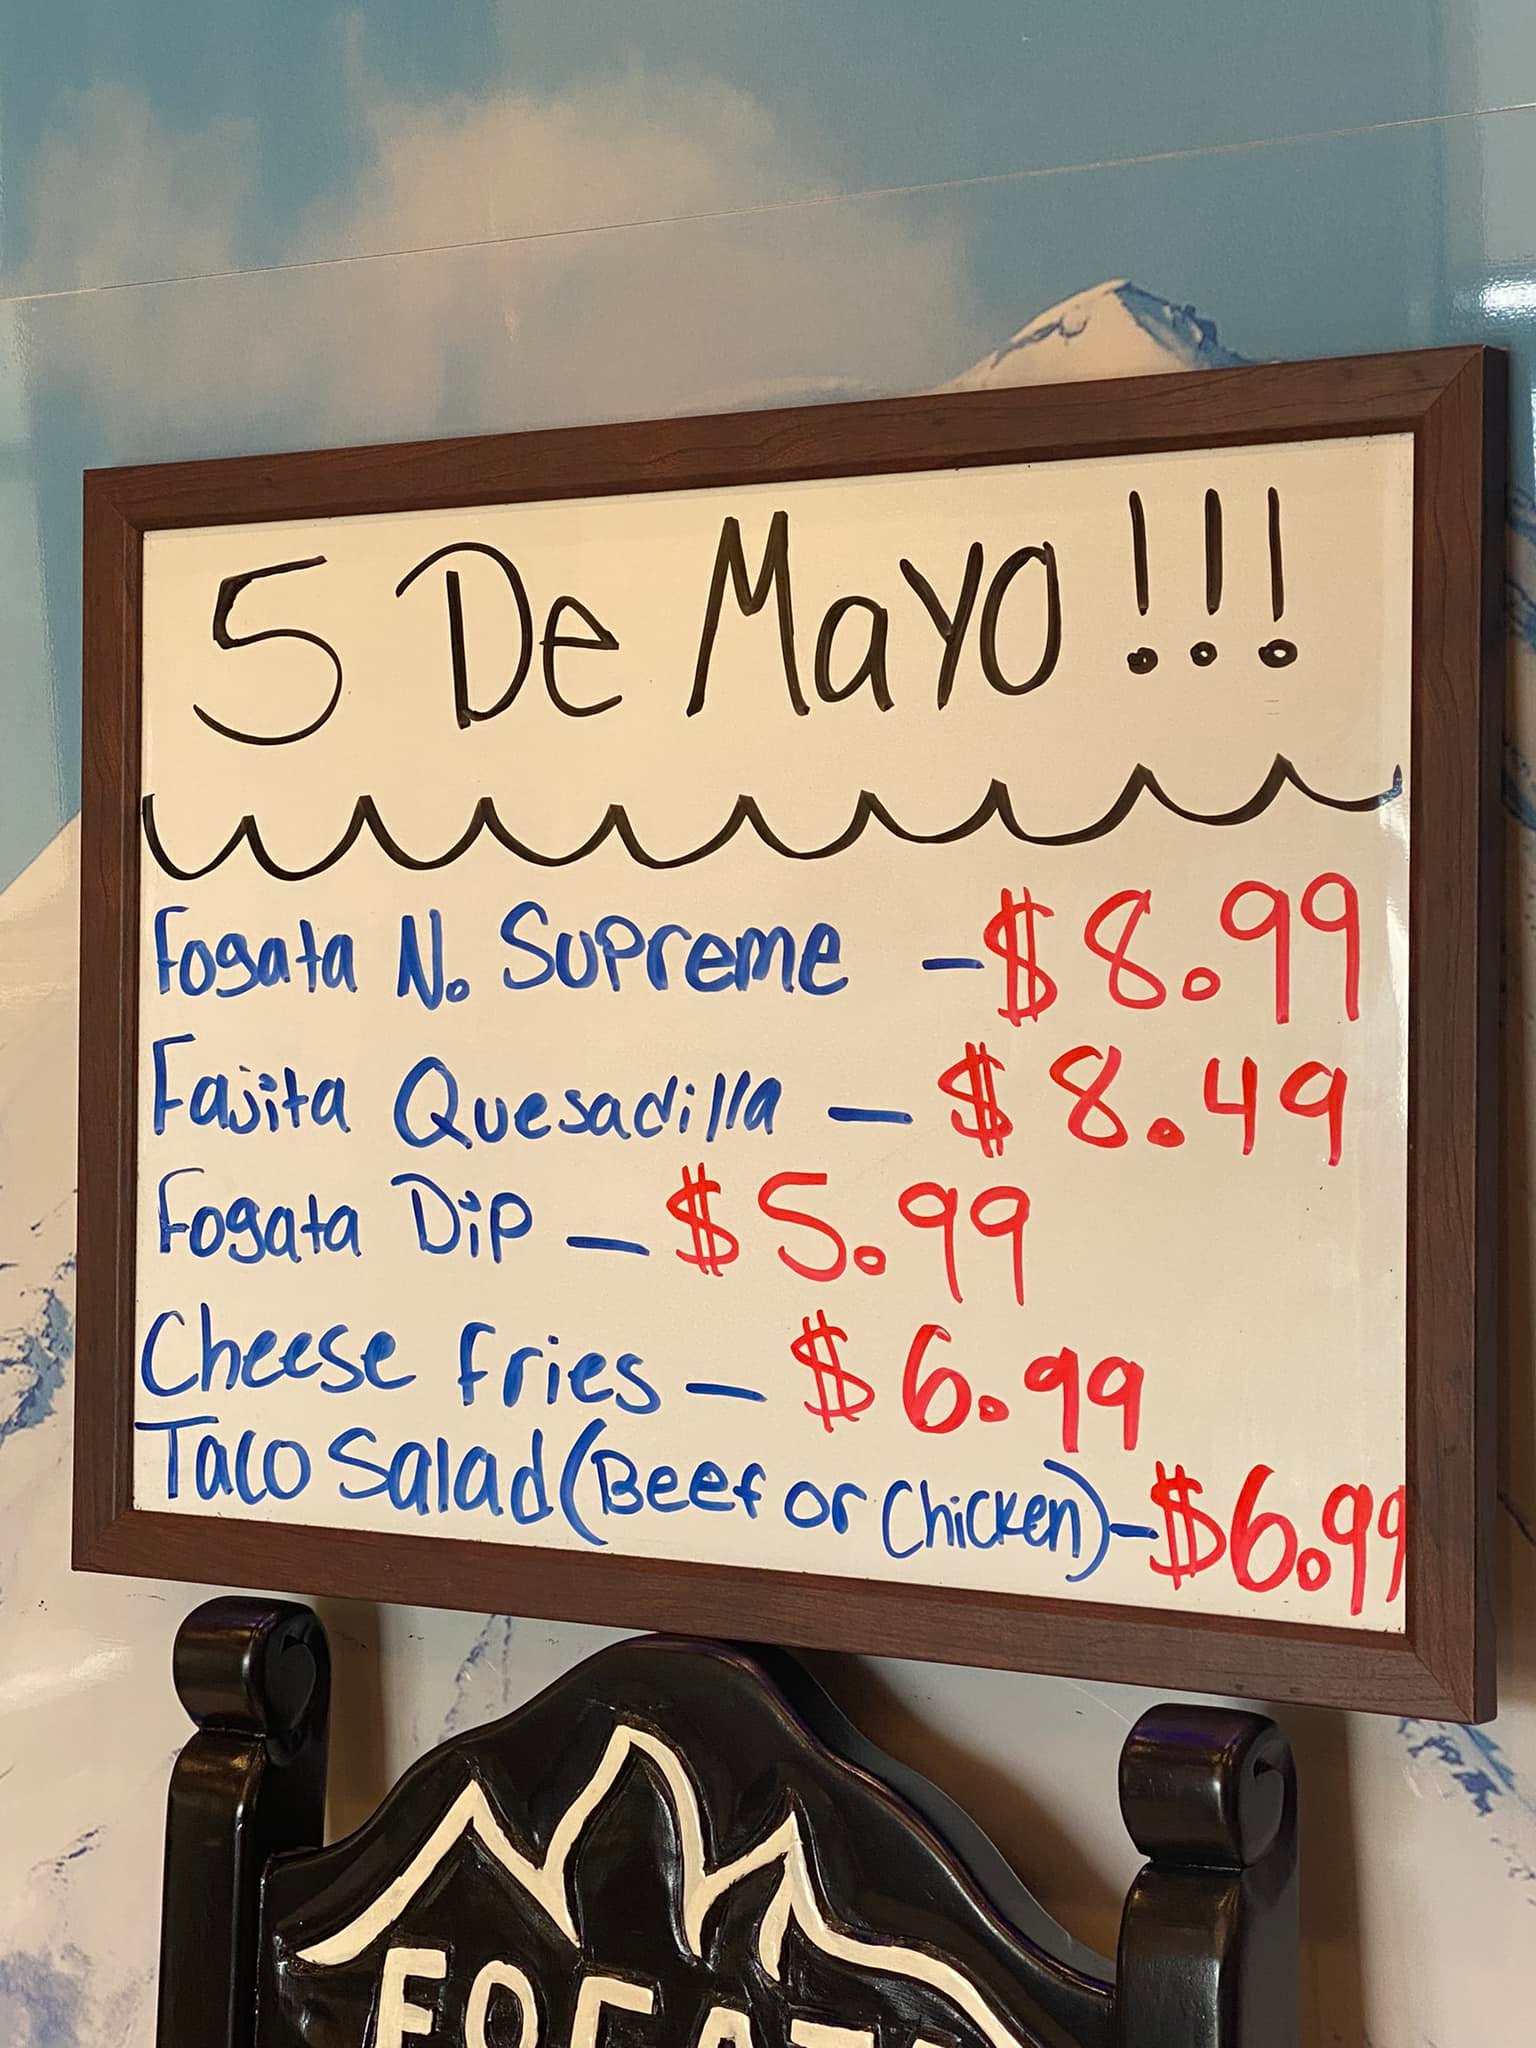 5 De Mayo!!!
Fogata N. Supreme - $8.99
Fajita Quesadilla - $8.49
Fogata Dip - $5.99
Cheese fries - $6.99
Taco Salad (Beef or Chicken) - $6.99
FOGATA